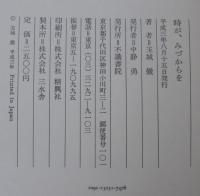 時が、みづからを
平成三年八月十五日発行
著者＝玉城 徹
発行者＝中静 勇
発行所＝不識書院
東京都千代田区神田小川町三—一 郵便番号一〇一
電話＝東京(〇三)三二九一—九一〇三
振替＝東京五—一九〇九九五
印刷所＝株式会社 精興社
製本所＝株式会社 三水舎
定価＝二五〇〇円
© 玉城 徹 平成三年 Printed in Japan